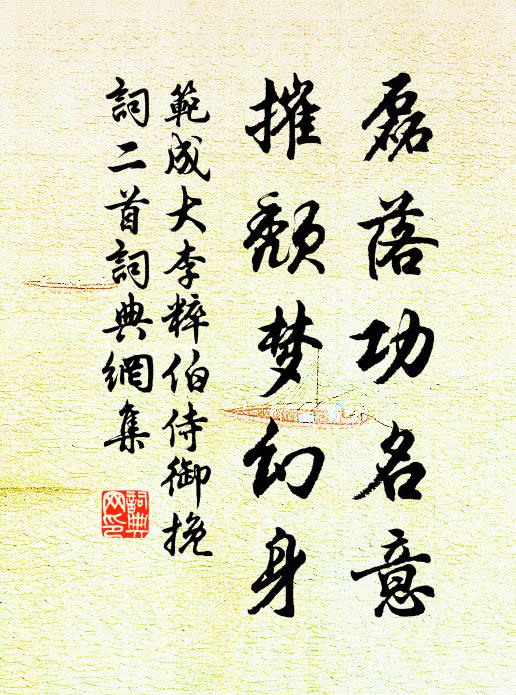 磊落功名意
摧頹梦幻身
範成大李粹伯侍御挽
詞二首詞典網集
詞典
网印